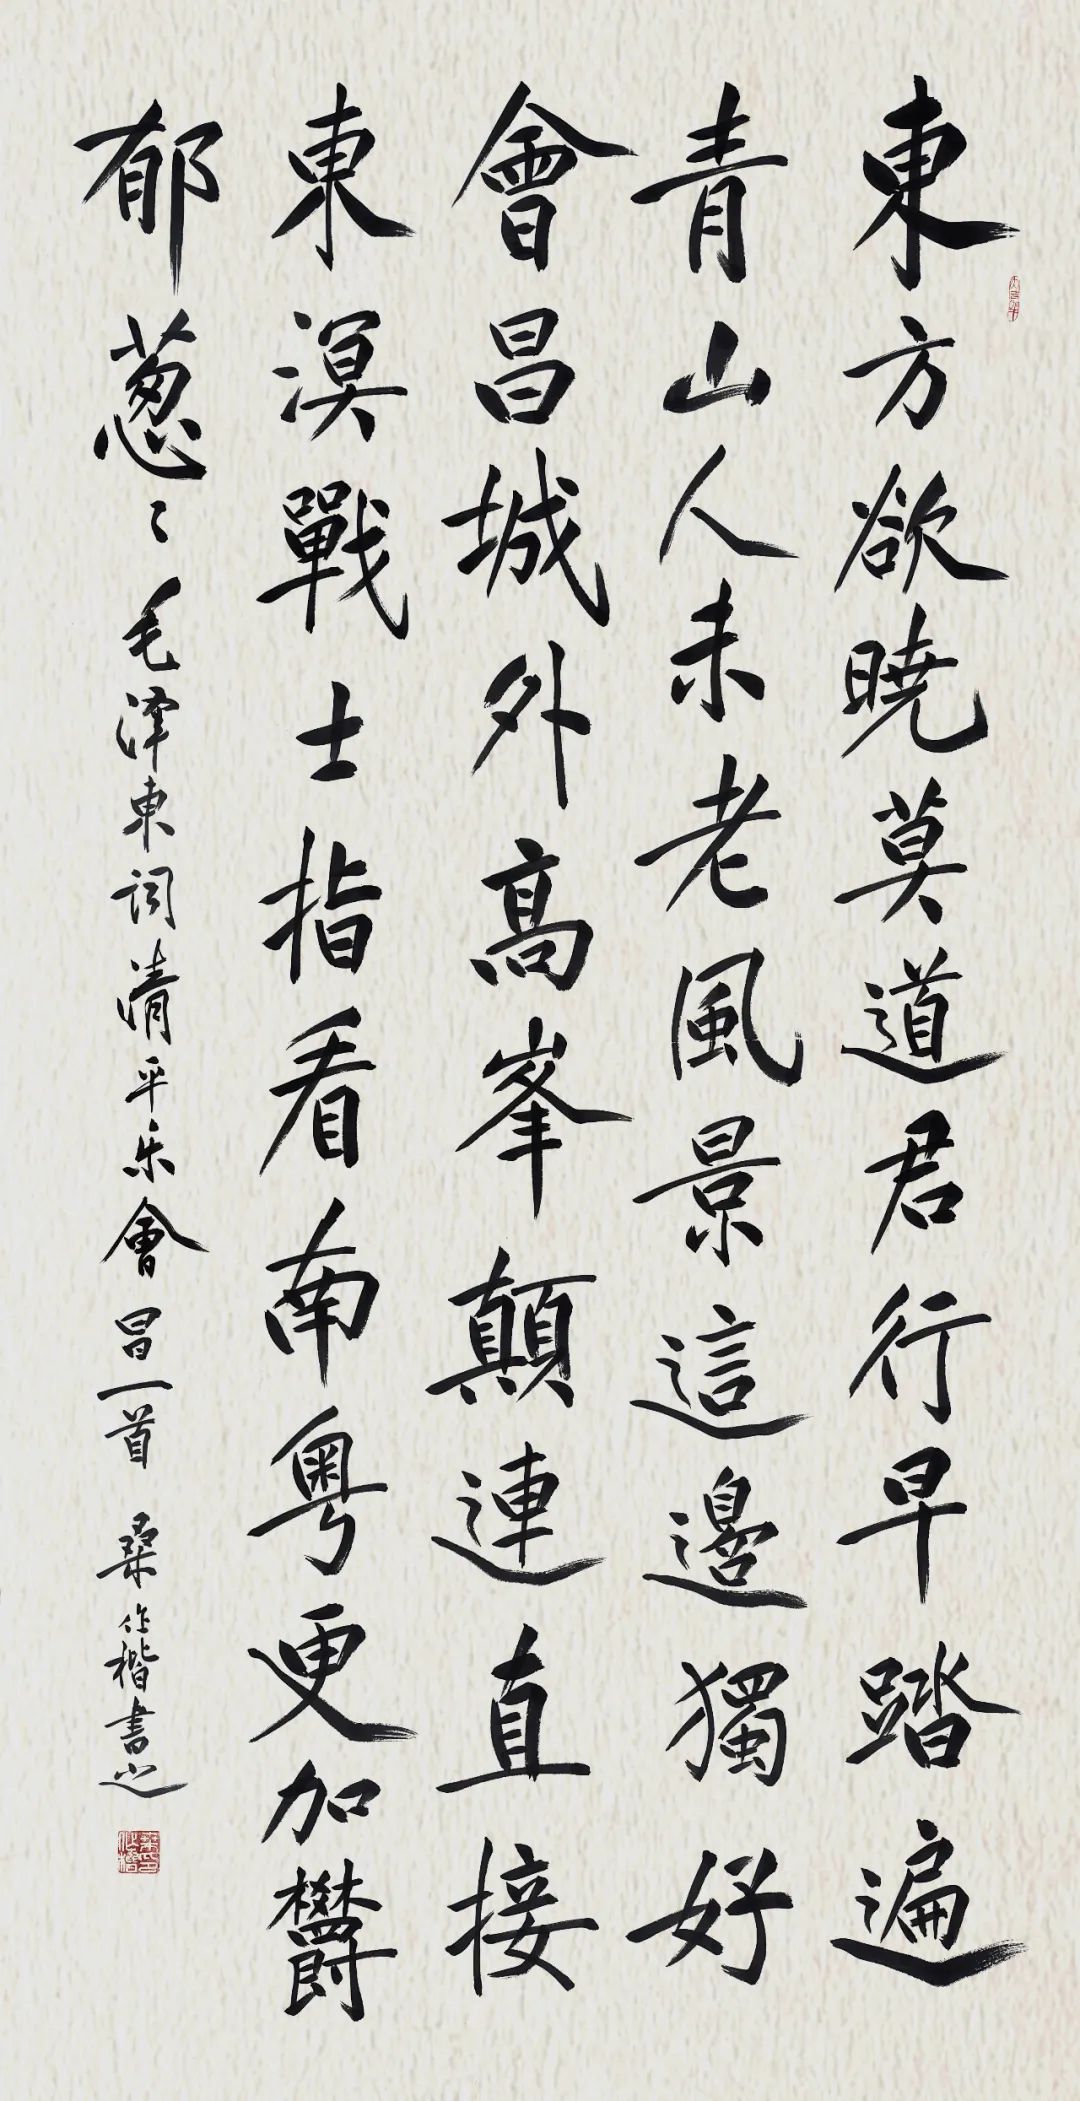 東方欲曉莫道君行早踏遍
青山人未老風景這邊獨好
會昌城外高峯顛連直接
東溟戰士指看南粵更加欝
郁葱々毛泽東词清平乐會昌一首 桑作楷書之